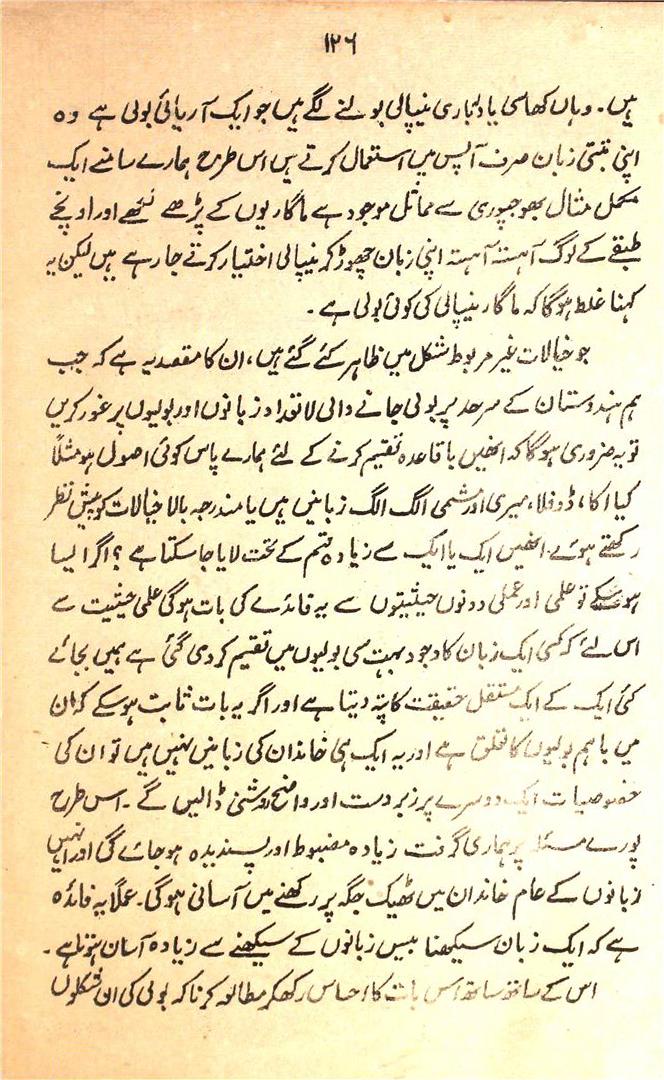 ۱۲۶
ہیں۔ وہاں کھامی یا دلہاری نیپالی بولنے لگے ہیں جو ایک آریائی بولی ہے وہ
اپنی تبتی زبان صرف آپس میں استعمال کرتے ہیں اس طرح ہمارے سامنے ایک
مکمل مثال بھوجپوری سے مماثل موجود ہے ماگاریوں کے پڑھے لکھے اور اونچے
طبقے کے لوگ آہستہ آہستہ اپنی زبان چھوڑ کر نیپالی اختیار کرتے جا رہے ہیں لیکن یہ
کہنا غلط ہوگا کہ ماگار نیپالی کی کوئی بولی ہے۔
جو خیالات غیر مربوط شکل میں ظاہر کئے گئے ہیں، ان کا مقصد یہ ہے کہ جب
ہم ہندوستان کے سرحد پر بولی جانے والی لاتعداد زبانوں اور بولیوں پر غور کریں
تو یہ ضروری ہوگا کہ انھیں باقاعدہ تقسیم کرنے کے لئے ہمارے پاس کوئی اصول ہو مثلاً
کیا اکا، ڈوفلا، میری اور مشمی الگ الگ زبانیں ہیں یا مندرجہ بالا خیالات کو پیش نظر
رکھتے ہوئے انھیں ایک یا ایک سے زیادہ قسم کے تحت لایا جا سکتا ہے؟ اگر ایسا
ہو سکے تو علمی اور عملی دونوں حیثیتوں سے یہ فائدے کی بات ہوگی علمی حیثیت سے
اس لئے کہ کسی ایک زبان کا وجود بہت سی بولیوں میں تقسیم کر دی گئی ہے ہمیں بجائے
کئی ایک کے ایک مستقل حقیقت کا پتہ دیتا ہے اور اگر یہ بات ثابت ہو سکے کہ ان
میں باہم بولیوں کا تعلق ہے اور یہ ایک ہی خاندان کی زبانیں نہیں ہیں تو ان کی
خصوصیات ایک دوسرے پر زبردست اور واضح روشنی ڈالیں گے۔ اس طرح
پورے مسئلہ پر ہماری گرفت زیادہ مضبوط اور پسندیدہ ہو جائے گی اور انہیں
زبانوں کے عام خاندان میں ٹھیک جگہ پر رکھنے میں آسانی ہوگی۔ عملاً یہ فائدہ
ہے کہ ایک زبان سیکھنا بیس زبانوں کے سیکھنے سے زیادہ آسان ہوتا ہے۔
اس کے ساتھ ساتھ اس بات کا احساس رکھ کر مطالعہ کرنا کہ بولی کی ان شکلوں